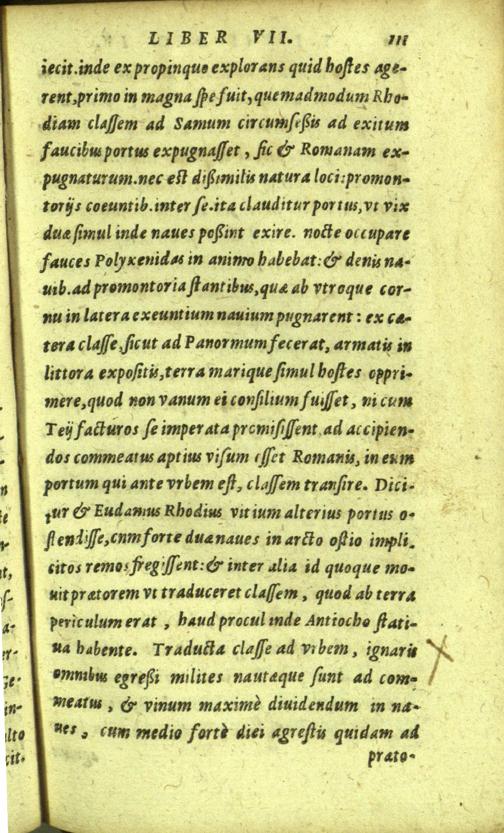 LIBER VII. 111
iecit.inde ex propinquo explorans quid hoſtes age-
rent,primo in magna ſpe fuit,quemadmodum Rho-
diam claſſem ad Samum circumſeßis ad exitum
faucibus portus expugnaſſet, ſic & Romanam ex-
pugnaturum.nec est dißimilis natura loci:promon-
torijs coeuntib.inter ſe.ita clauditur portus,vt vix
duæ ſimul inde naues poßint exire. nocte occupare
fauces Polyxenidas in animo habebat:& denis na-
uib.ad promontoria ſtantibus,quæ ab vtroque cor-
nu in latera exeuntium nauium pugnarent: ex cæ-
tera claſſe,ſicut ad Panormum fecerat, armatis in
littora expoſitis,terra marique ſimul hoſtes oppri-
mere,quod non vanum ei conſilium fuiſſet, ni cum
Teij facturos ſe imperata promiſiſſent, ad accipien-
dos commeatus aptius viſum eſſet Romanis, in eum
portum qui ante vrbem est, claſſem tranſire. Dici-
tur & Eudamus Rhodius vitium alterius portus o-
ſtendiſſe,cnm forte duæ naues in arcto oſtio impli-
citos remos fregiſſent:& inter alia id quoque mo-
uit prætorem vt traduceret claſſem, quod ab terra
periculum erat, haud procul inde Antiocho ſtati-
ua habente. Traducta claſſe ad vrbem, ignaris
omnibus egreßi milites nautæque ſunt ad com-
meatus, & vinum maximè diuidendum in na-
ues, cum medio fortè diei agreſtis quidam ad
prato-
n
te
r-
nt,
iſ-
a-
er-
Ge-
in-
ulto
cit.